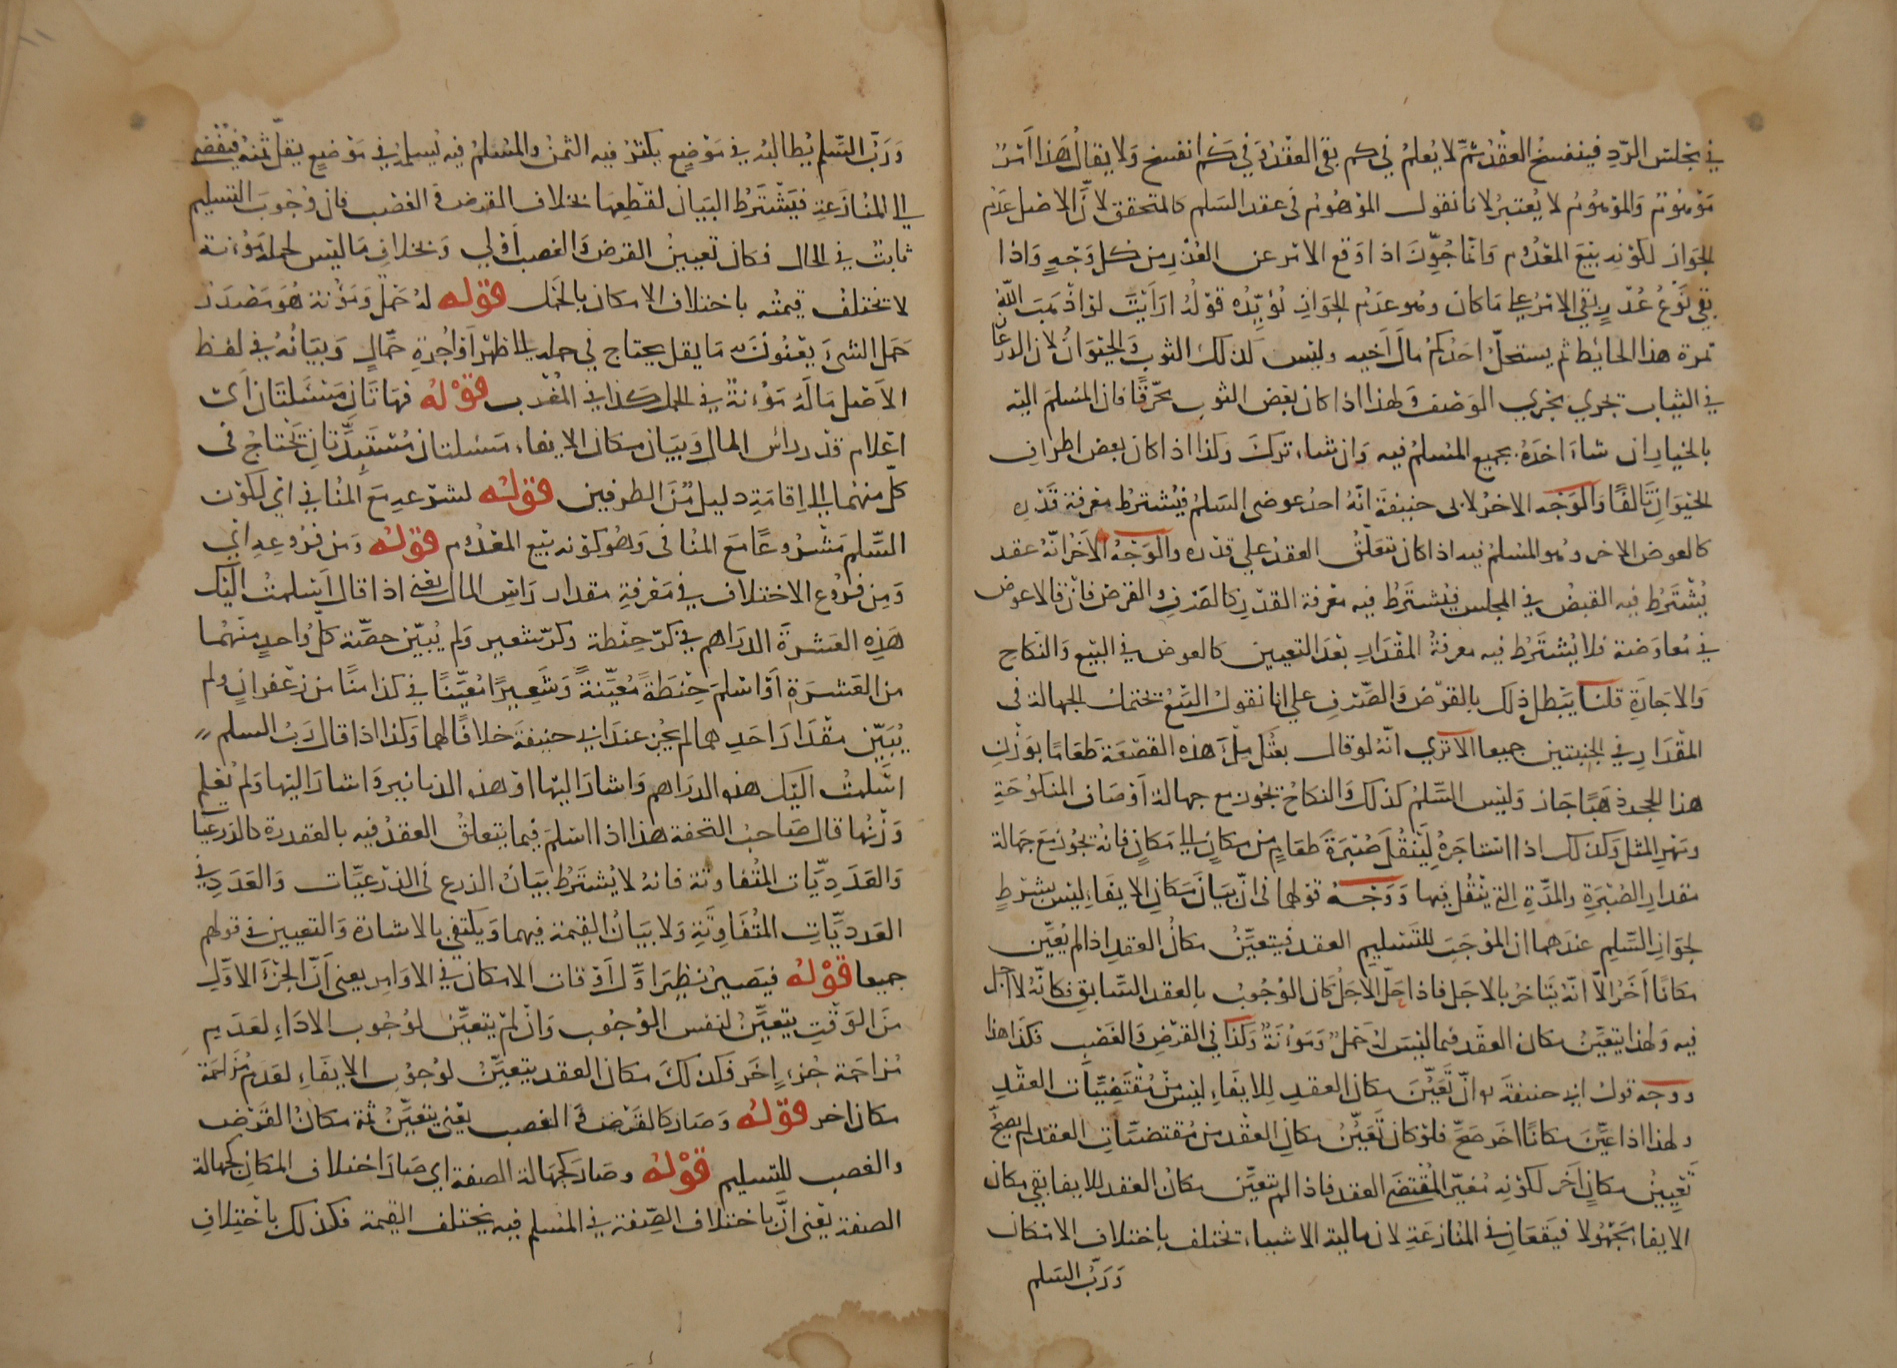 في مجلس الرد فينفسخ العقد ثم لا يعلم في كم بقى العقد و في كم انفسخ ولا يقال هذا امر
موهوم والموهوم لا يعتبر لانا نقول الموهوم في عقد السلم كالمتحقق لان الاصل عدم
الجواز لكونه بيع المعدوم وانما جوزت اذا وقع الامر عن الغدر من كل وجه واذا
بقي نوع غدر بقي الامر على ما كان وهو عدم الجواز يؤيده قوله ارايت لو اذهب الله
ثمرة هذا الحايط ثم يستحل احدكم مال اخيه وليس كذلك الثوب والحيوان لان الذرعان
في الثياب تجري مجري الوصف ولهذا اذا كان بعض الثوب محرقا فان المسلم اليه
بالخيار ان شاء اخذه بجميع المسلم فيه وان شاء ترك وكذا اذا كان بعض اطراف
الحيوان تالفا والوجه الاخر لابى حنيفة انه احد عوضى السلم فيشترط معرفة قدره
كالعوض الاخر وهو المسلم فيه اذا كان تتعلق العقد على قدره والوجه الاخر انه عقد
يشترط فيه القبض في المجلس فيشترط فيه معرفة القدر كالصرف والقرض فانهما لا عوض
في معاوضة فلا يشترط فيه معرفة المقدار بعد التعيين كالعوض في البيع والنكاح
والاجارة قلنا يبطل ذلك بالقرض والصرف على انا نقول البيع يحتمل الجهالة في
المقدار في الجنبتين جميعا الا ترى انه لو قال بعتك ملء هذه القصعة طعاما بوزن
هذا الحجر ذهبا جاز وليس السلم كذلك والنكاح يجوز مع جهالة اوصاف المنكوحة
ومهر المثل وكذلك اذا استاجره لينقل صبرة طعام من مكان الى مكان فانه يجوز مع جهالة
مقدار الصبرة والمدة التي ينقل فيها ووجه قولهما في ان بيان مكان الايفاء ليس بشرط
لجواز السلم عندهما ان الموجب للتسليم العقد فيتعين مكان العقد اذا لم يعين
مكانا اخر الا انه يتاخر بالاجل فاذا حل الاجل كان الوجوب بالعقد السابق فكانه لا اجل
فيه ولهذا يتعين مكان العقد فيما ليس له حمل ومؤنة وكذا في القرض والغصب فكذا هذا
ووجه قول ابي حنيفة ان تعين مكان العقد للايفاء ليس من مقتضيات العقد
ولهذا اذا عين مكانا اخر صح فلو كان تعين مكان العقد من مقتضيات العقد لم يصح
تعيين مكان اخر لكونه مغير المقتضى العقد فاذا لم يتعين مكان العقد للايفا بقي مكان
الايفاء مجهولا فيقعان في المنازعة لان مالية الاشياء تختلف باختلاف الامكان
ورب السلم
ورب السلم يطالبه في موضع يكثر فيه الثمن والمسلم فيه يسلم في موضع يقل ثمنه فيفضى
الى المنازعة فيشترط البيان لقطعها بخلاف القرض و الغصب فان وجوب التسليم
ثابت في الحال فكان تعيين القرض والغصب اولى وبخلاف ما ليس لحمله مؤنة
لا تختلف قيمته باختلاف الامكان بالحمل قوله له حمل ومؤنة هو مصدر
حمل الشئ يعنون به ما يقل يحتاج في حمله الى ظهر او اجرة حمال وبيانه في لفظ
الاصل ماله مؤنة في الحمل كذا في المغرب قوله فهاتان مسئلتان اى
اعلام قدر راس المال وبيان مكان الايفاء مسئلتان مستبدتان تحتاج فى
كل منهما الى اقامة دليل من الطرفين قوله لشرعه مع المنافي اي لكون
السلم مشروعا مع المنافى وهو كونه بيع المعدوم قوله ومن فروعه اي
ومن فروع الاختلاف في معرفة مقدار راس المال يعني اذا قال اسلمت اليك
هذه العشرة الدراهم في كر حنطة وكر شعير ولم يبين حصة كل واحد منهما
من العشرة او اسلم حنطة معينة وشعيرا معينا في كذا منا من زعفران ولم
يبين مقدار احدهما لم يجز عند ابي حنيفة خلافا لهما وكذا اذا قال رب السلم
اسلمت اليك هذه الدراهم واشار اليها او هذه الدنانير واشار اليها ولم يعلم
وزنها قال صاحب التحفة هذا اذا اسلم فيما يتعلق العقد فيه بالعقدرة كالذرعيا
والعدديات المتفاوتة فانه لا يشترط بيان الذرع في الذرعيات والعدد في
العدديات المتفاوتة ولا بيان القيمة فيهما ويكتفي بالاشارة والتعيين في قولهم
جميعا قوله فيصير نظير اول اوقات الامكان في الاوامر يعني ان الجزء الاول
من الوقت يتعين لنفس الوجوب وان لم يتعين لوجوب الاداء لعدم
مزاحمة جزء اخر فكذلك مكان العقد يتعين لوجوب الايفاء لعدم مزاحمة
مكان اخر قوله وصار كالقرض و الغصب يعني يتعين ثمة مكان القرض
والغصب للتسليم قوله وصار كجهالة الصفة اي صار اختلاف المكان كجهالة
الصفة يعنى ان باختلاف الصفة في المسلم فيه يختلف القيمة فكذلك باختلاف